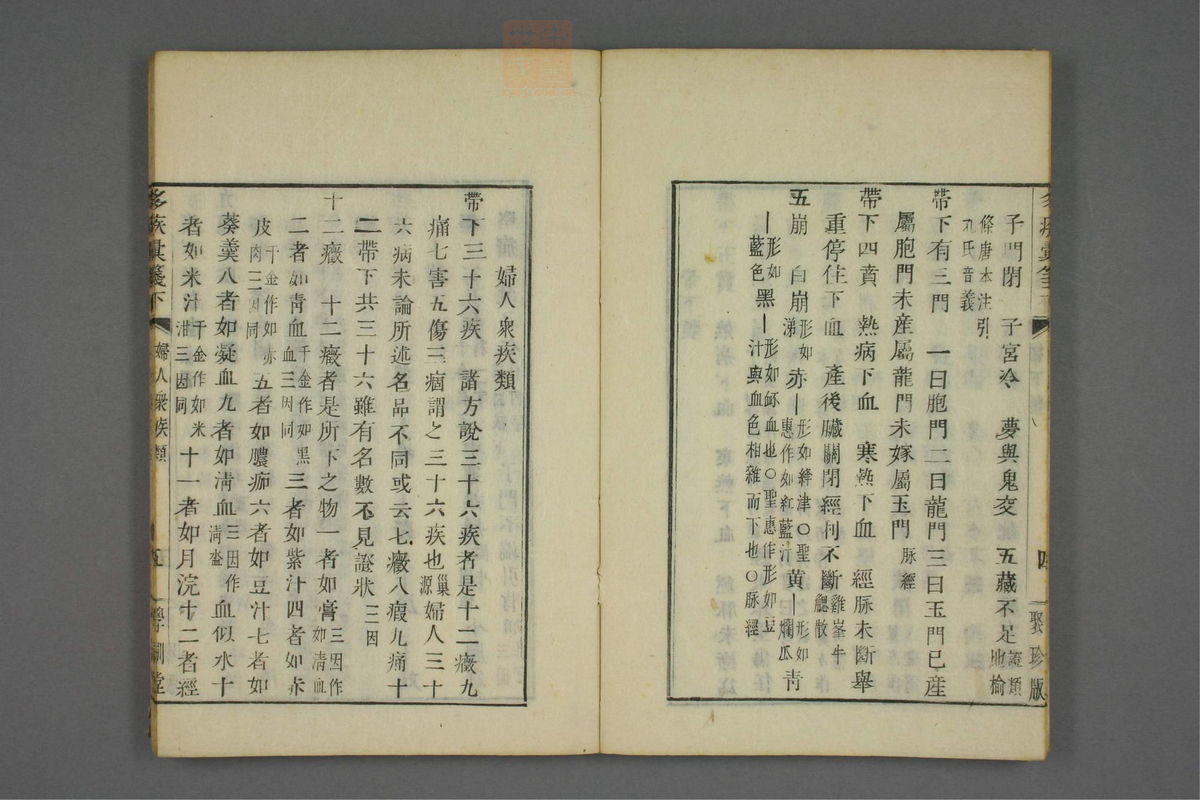 子門閉　子宮冷　夢與鬼交　五藏不足證類地榆
條唐本注引
元氏音義
帶下有三門　一曰胞門二曰龍門三曰玉門已產
屬胞門未產屬龍門未嫁屬玉門脉經
帶下四賁　熱病下血　寒熱下血　經脉未斷舉
重停住下血　產後臟關閉經利不斷雞峯牛䚡散
五崩　白崩形如涕赤｜形如絳津○聖惠作如紅藍汁黃｜形如爛瓜青
｜形如藍色黑｜形如衃血也○聖惠作形如豆汁與血色相雜而下也○脉經
聚珍版
婦人衆疾類
帶下三十六疾　諸方說三十六疾者是十二癥九
痛七害五傷三痼謂之三十六疾也巢源婦人三十
六病未論所述名品不同或云七癥八瘕九痛十
二帶下共三十六雖有名數不見證狀三因
十二癥　十二癥者是所下之物一者如膏三因作如清血
二者如靑血千金作如黑血三因同三者如紫汁四者如赤
皮千金作如赤肉三因同五者如膿痂六者如豆汁七者如
葵羹八者如凝血九者如淸血三因作淸盎血似水十
者如米汁千金作如米泔三因同十一者如月浣十二者經
多疾彙箋下　婦人衆疾類　五　學訓堂